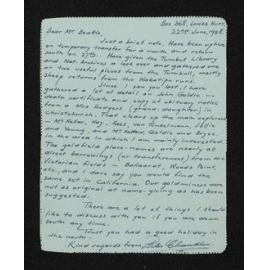 Box 268, Lower Hutt,
22nd June, 1958.
Dear Mr. Beattie,
Just a brief note. Have been up here
on temporary transfer for a month and return
south on 27th. Have given the Turnbull Library
and Nat. Archives a look over and gathered one
or two useful pieces from the Turnbull, mostly
sheep returns from the Wakatipu runs.
Since I saw you last I have
gathered a lot of detail on John Goldie -
death certificate and copy of obituary notice
from a Miss Rodgers (grand-daughter) in
Christchurch. That cleans up the main explorers
- McKellar, Hay, Rees, von Tunzelmann, Gilbert
and Young, and McKerrow, Goldie and Bryce.
in the area in which I am mainly interested.
The goldfield place-names are nearly all
direct borrowings (or transferences) from the
Victorian fields - Ballarat, Woods Point,
etc, and I dare say you would find the
same set in California. Our goldminers were
not as original at name-giving as has been
suggested.
There are a lot of things I should
like to discuss with you if you are down
south any time.
Trust you had a good holiday in
the north.
Kind regards from